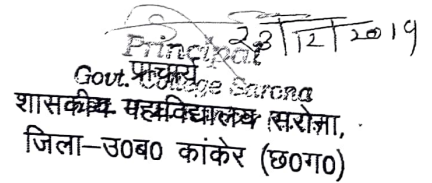 23/12/2019
Principal
प्राचार्य
Govt. College Sarona
शासकीय महाविद्यालय सरोना,
जिला-उ0ब0 कांकेर (छ0ग0)